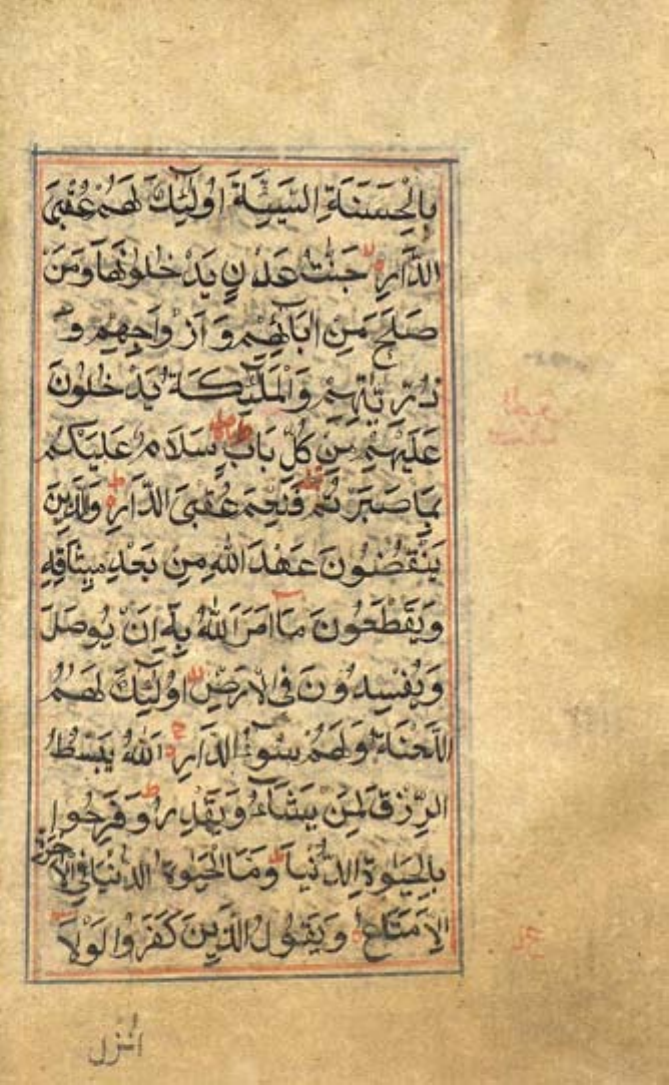 بِالْحَسَنَةِ السَّيِّئَةَ اُولٰٓئِكَ لَهُمْ عُقْبَى
الدَّارِ جَنّٰتُ عَدْنٍ يَدْخُلُونَهَا وَمَنْ
صَلَحَ مِنْ اٰبَآئِهِمْ وَاَزْوَاجِهِمْ وَ
ذُرِّيّٰتِهِمْ وَالْمَلٰٓئِكَةُ يَدْخُلُونَ
عَلَيْهِمْ مِنْ كُلِّ بَابٍ سَلَامٌ عَلَيْكُمْ
بِمَا صَبَرْتُمْ فَنِعْمَ عُقْبَى الدَّارِ وَالَّذِينَ
يَنْقُضُونَ عَهْدَ اللهِ مِنْ بَعْدِ مِيثَاقِهِ
وَيَقْطَعُونَ مَا اَمَرَ اللهُ بِهٓ اَنْ يُوصَلَ
وَيُفْسِدُونَ فِى الْاَرْضِ اُولٰٓئِكَ لَهُمُ
اللَّعْنَةُ وَلَهُمْ سُوٓءُ الدَّارِ اَللهُ يَبْسُطُ
الرِّزْقَ لِمَنْ يَشَآءُ وَيَقْدِرُ وَفَرِحُوا
بِالْحَيٰوةِ الدُّنْيَا وَمَا الْحَيٰوةُ الدُّنْيَا فِى الْاٰخِرَةِ
اِلَّا مَتَاعٌ وَيَقُولُ الَّذِينَ كَفَرُوا لَوْلَآ
اُنْزِلَ